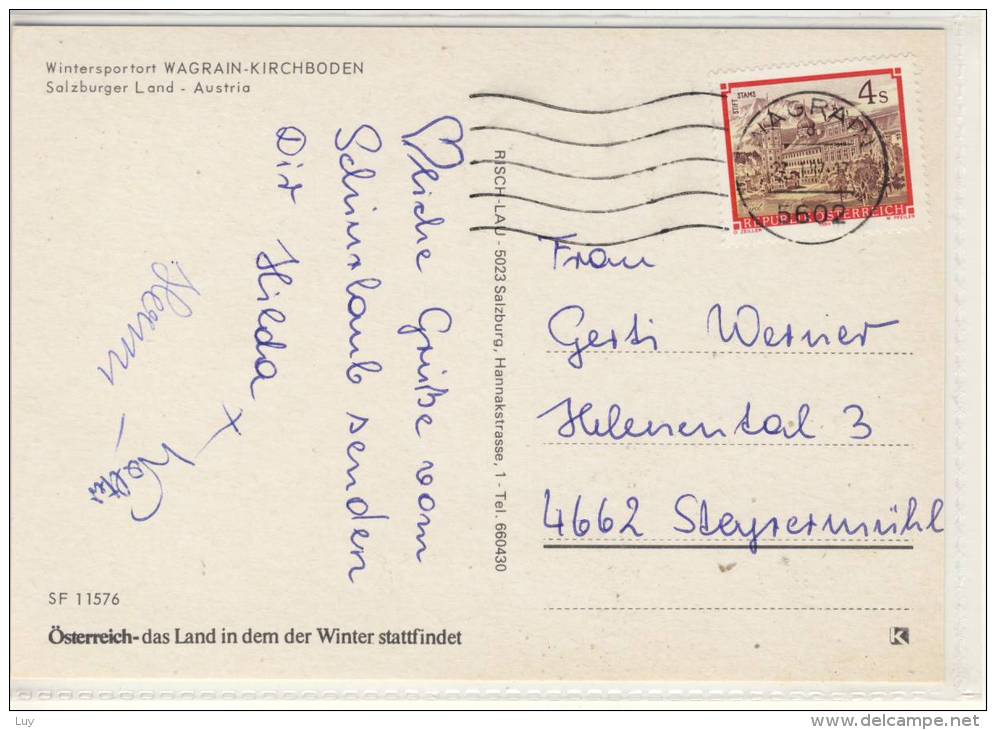 Wintersportort WAGRAIN-KIRCHBODEN
Salzburger Land - Austria
♡liche Grüße vom
Schiurlaub senden
Dir Hilda +
RISCH-LAU - 5023 Salzburg, Hannakstrasse, 1 - Tel. 660430
STIFT STAMS
4s
REPUBLIK ÖSTERREICH
WAGRAIN
5602
Frau
Gerti Werner
Helenental 3
4662 Steyrermühl
SF 11576
Österreich-das Land in dem der Winter stattfindet
K
Luy
www.delcampe.net